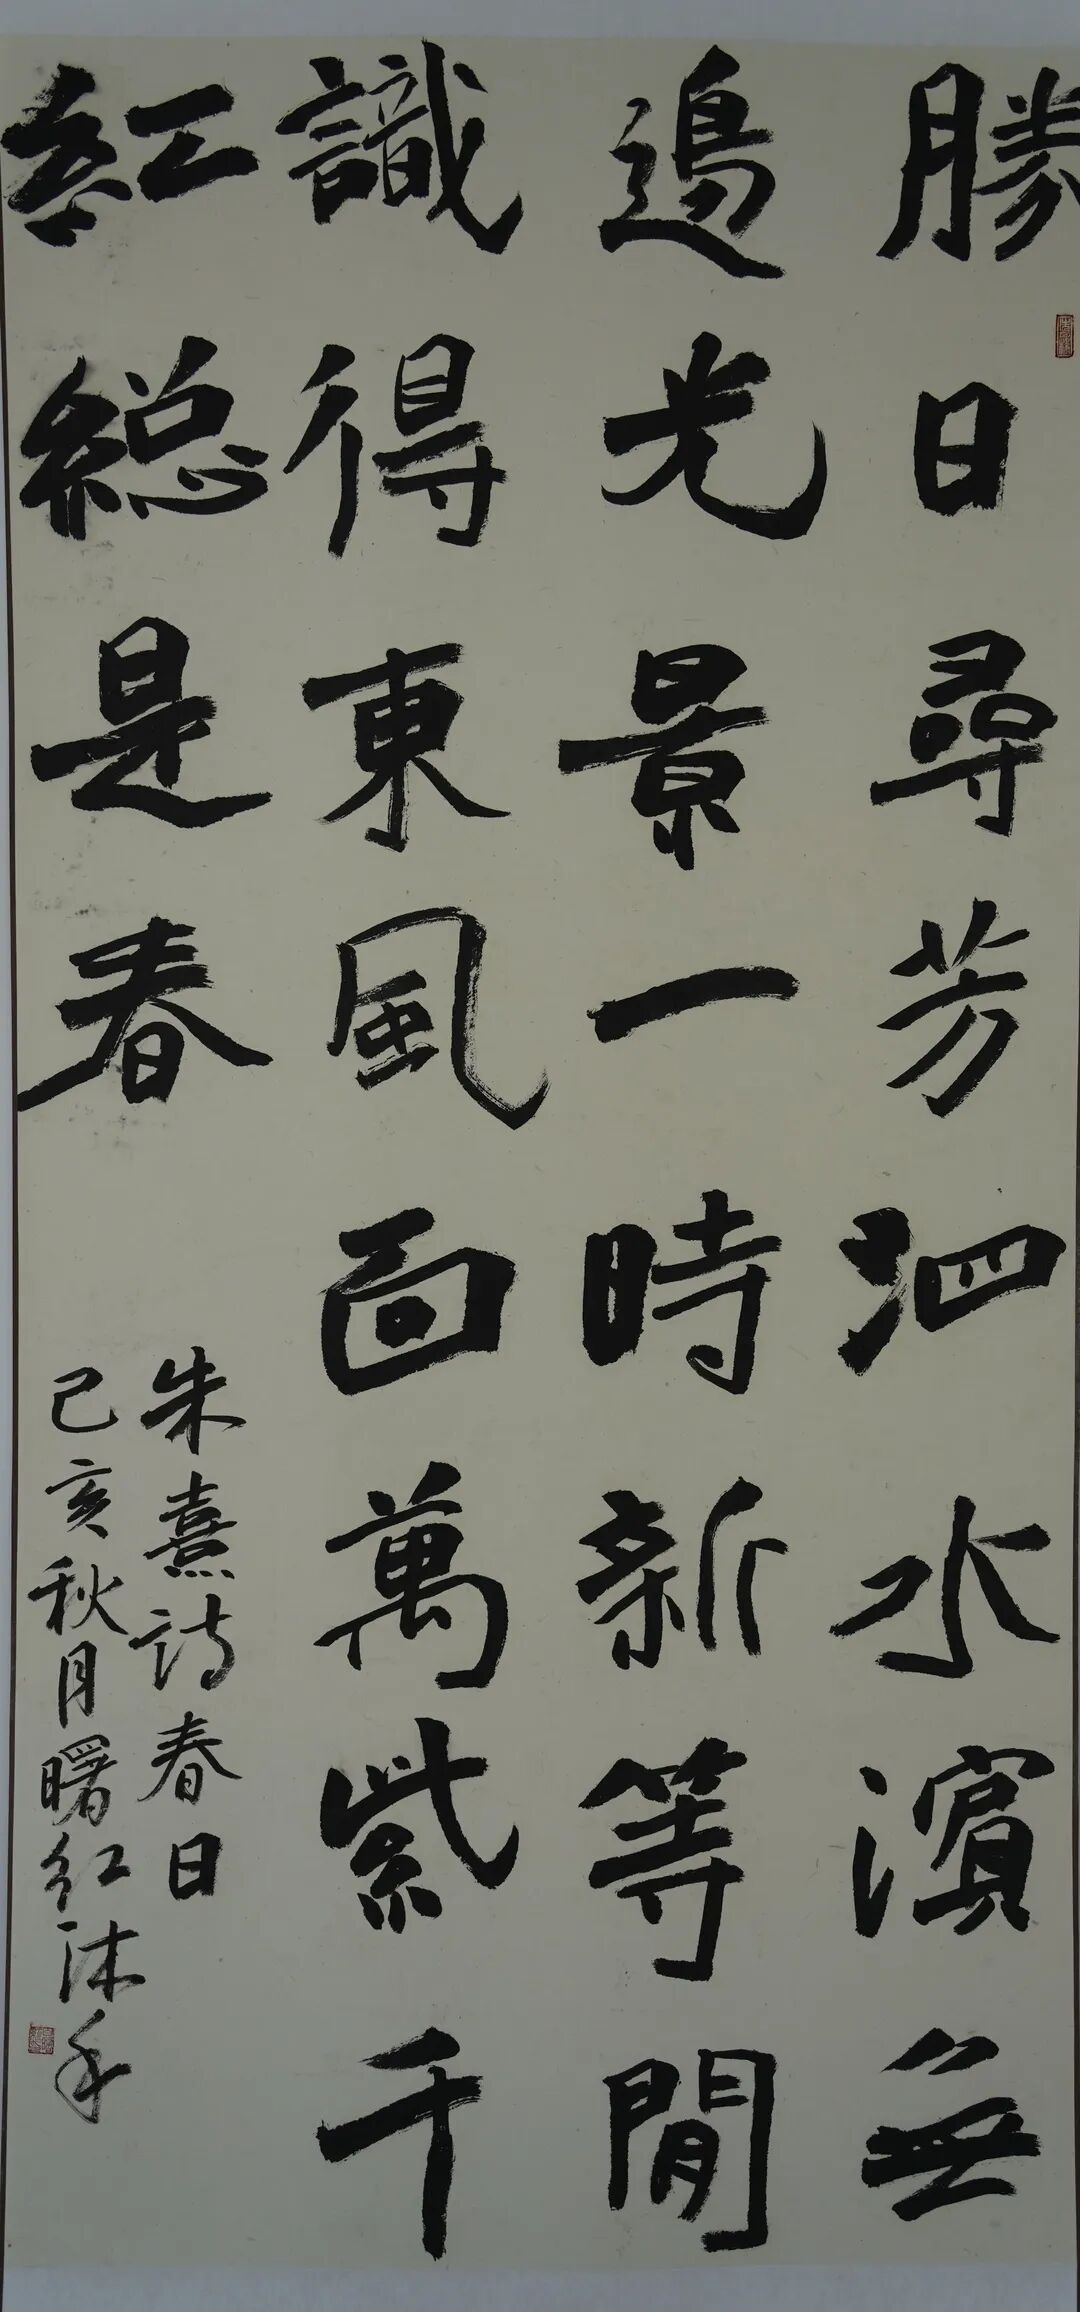 勝日尋芳泗水濱無
邊光景一時新等閒
識得東風面萬紫千
紅總是春
朱熹詩春日
己亥秋月曙紅沐手